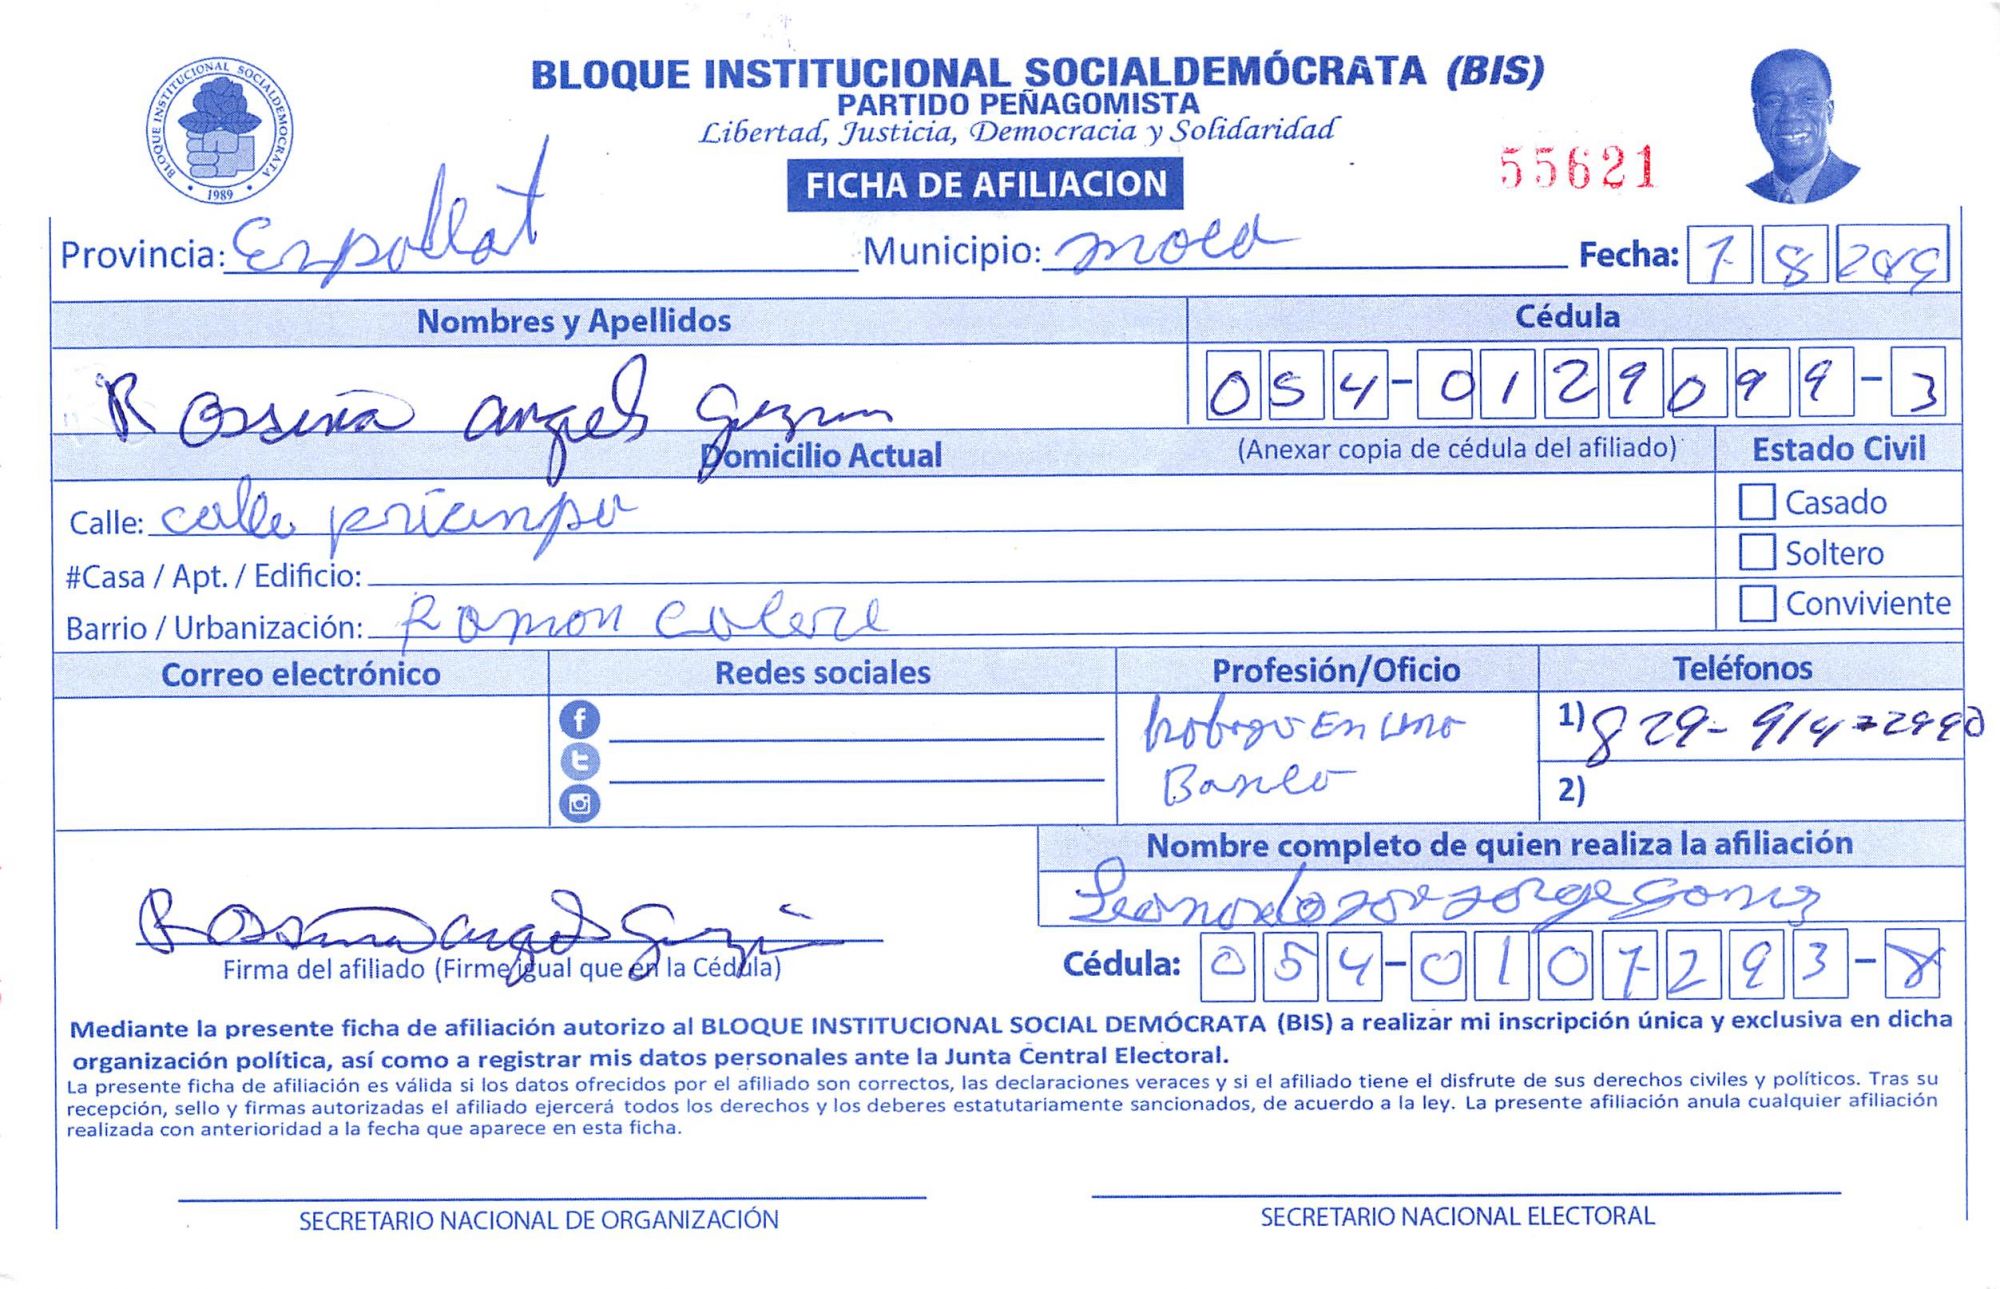 BLOQUE INSTITUCIONAL SOCIALDEMÓCRATA (BIS)
PARTIDO PEÑAGOMISTA
Libertad, Justicia, Democracia y Solidaridad
BLOQUE INSTITUCIONAL SOCIALDEMOCRATA
1989
FICHA DE AFILIACION
55621
Provincia: Municipio: moca Fecha: 7 8
Nombres y Apellidos Cédula
Angel 054-0129099-3
Domicilio Actual (Anexar copia de cédula del afiliado) Estado Civil
Calle: calle Casado
Soltero
#Casa / Apt. / Edificio:
Conviviente
Barrio / Urbanización: Ramon
Correo electrónico Redes sociales Profesión/Oficio Teléfonos
En una 1) 829-914-2990
Banco 2)
Nombre completo de quien realiza la afiliación
Leonardo
Firma del afiliado (Firme igual que en la Cédula) Cédula: 054-0107293-8
Mediante la presente ficha de afiliación autorizo al BLOQUE INSTITUCIONAL SOCIAL DEMÓCRATA (BIS) a realizar mi inscripción única y exclusiva en dicha
organización política, así como a registrar mis datos personales ante la Junta Central Electoral.
La presente ficha de afiliación es válida si los datos ofrecidos por el afiliado son correctos, las declaraciones veraces y si el afiliado tiene el disfrute de sus derechos civiles y políticos. Tras su
recepción, sello y firmas autorizadas el afiliado ejercerá todos los derechos y los deberes estatutariamente sancionados, de acuerdo a la ley. La presente afiliación anula cualquier afiliación
realizada con anterioridad a la fecha que aparece en esta ficha.
SECRETARIO NACIONAL DE ORGANIZACIÓN SECRETARIO NACIONAL ELECTORAL